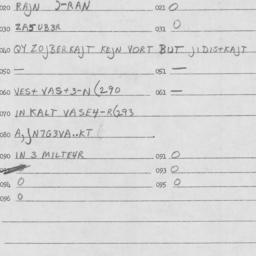 020 RAJN J-RAN 021 0
030 ZA5UB3R 031 0
040 QY ZOJBERKAJT KEJN VORT BUT JIDIS+KAJT
050 — 051 —
060 VES+ VAS+3-N (290 061 —
070 IN KALT VASE4-R(293
080 A,JN7G3VA..KT
090 IN 3 MILTE4R 091 0
093 0
094 0 095 0
096 0